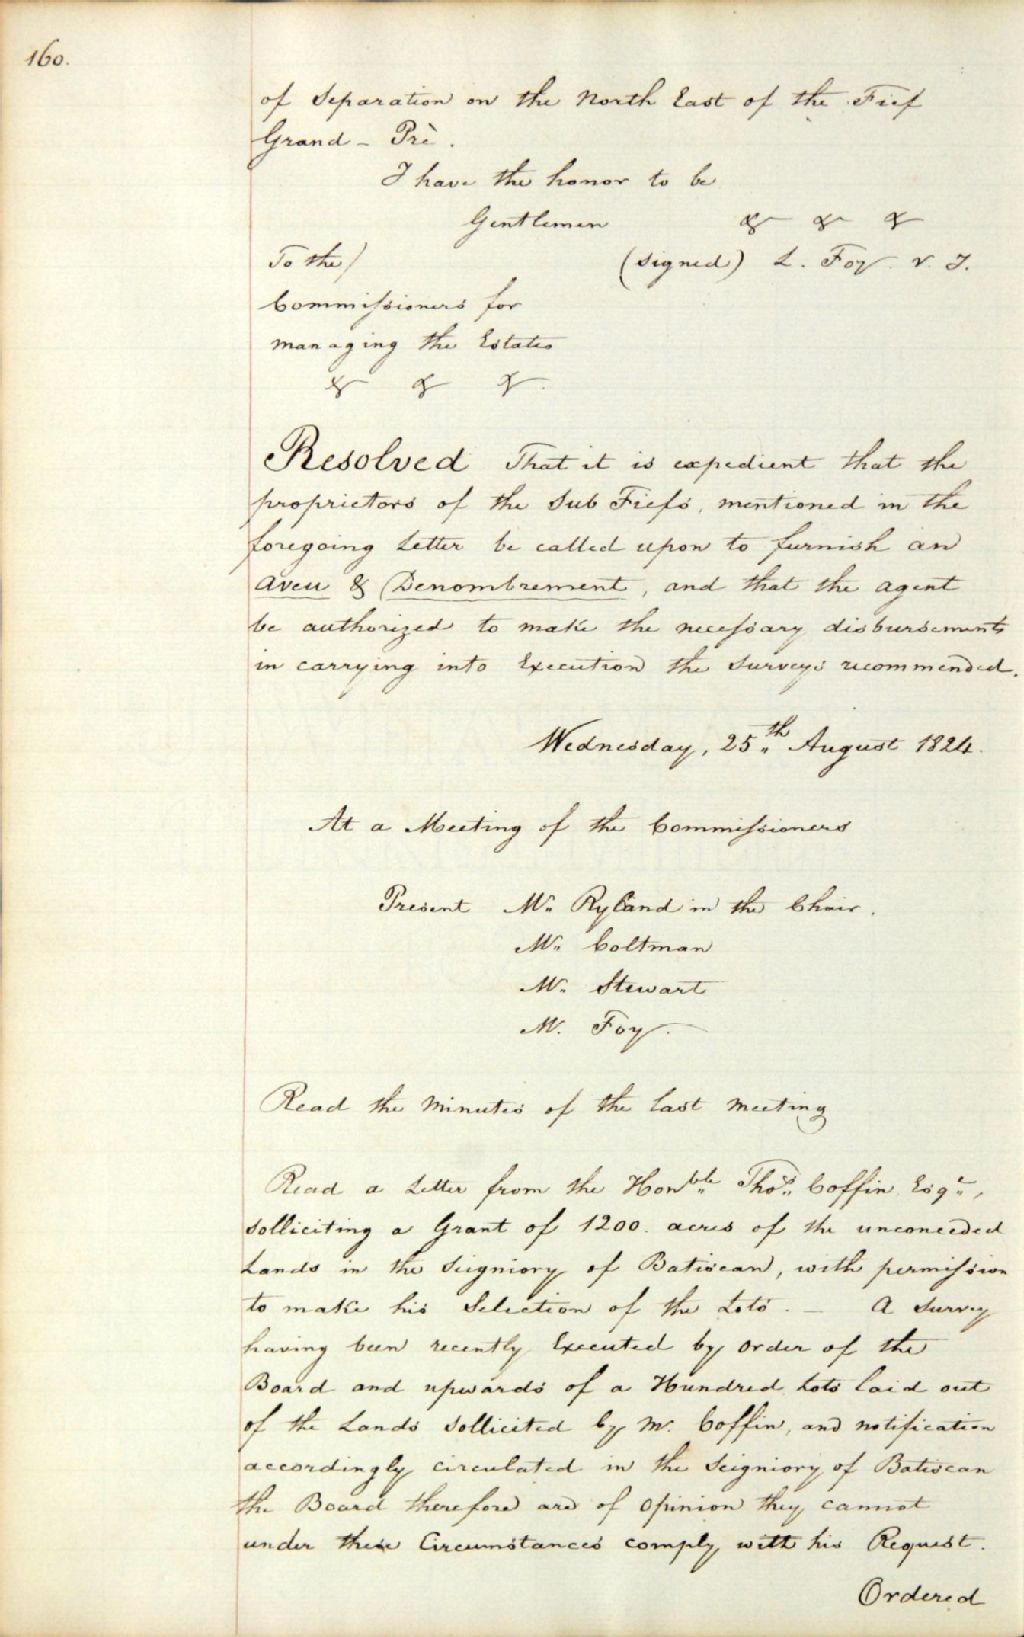 160.
of Separation on the North East of the Fief
Grand - Prè.
I have the honor to be
Gentlemen & & &
To the / (signed) L. Foy V. T.
Commissioners for
managing the Estates
& & &.
Resolved That it is expedient that the
proprietors of the Sub Fiefs, mentioned in the
foregoing Letter be called upon to furnish an
Aveu & Denombrement, and that the agent
be authorized to make the necessary disbursements
in carrying into Execution the surveys recommended.
Wednesday, 25th August 1824.
At a Meeting of the Commissioners
Present Mr Ryland in the Chair.
Mr Coltman
Mr Stewart
Mr. Foy.
Read the Minutes of the last Meeting
Read a Letter from the Honble Thos Coffin Esqr,
solliciting a Grant of 1200. acres of the unconceeded
Lands in the Seigniory of Batiscan, with permission
to make his Selection of the Lots. — A Survey
having been recently Executed by order of the
Board and upwards of a Hundred Lots laid out
of the Lands sollicited by Mr. Coffin, and notification
accordingly circulated in the Seigniory of Batiscan
the Board therefore are of Opinion they cannot
under these Circumstances comply with his Request.
Ordered